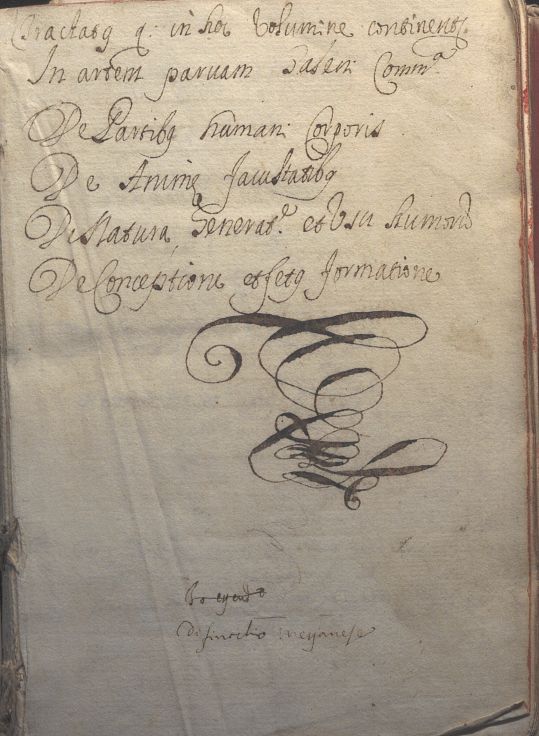 Tractatq q. in hoc Volumine continentr.
In artem parvam Galeni Comm.ª
De Partibq humani Corporis
De Anime facultatibq
De Natura, Generat.e et Usu humorũ
De Conceptione et fetq formatione